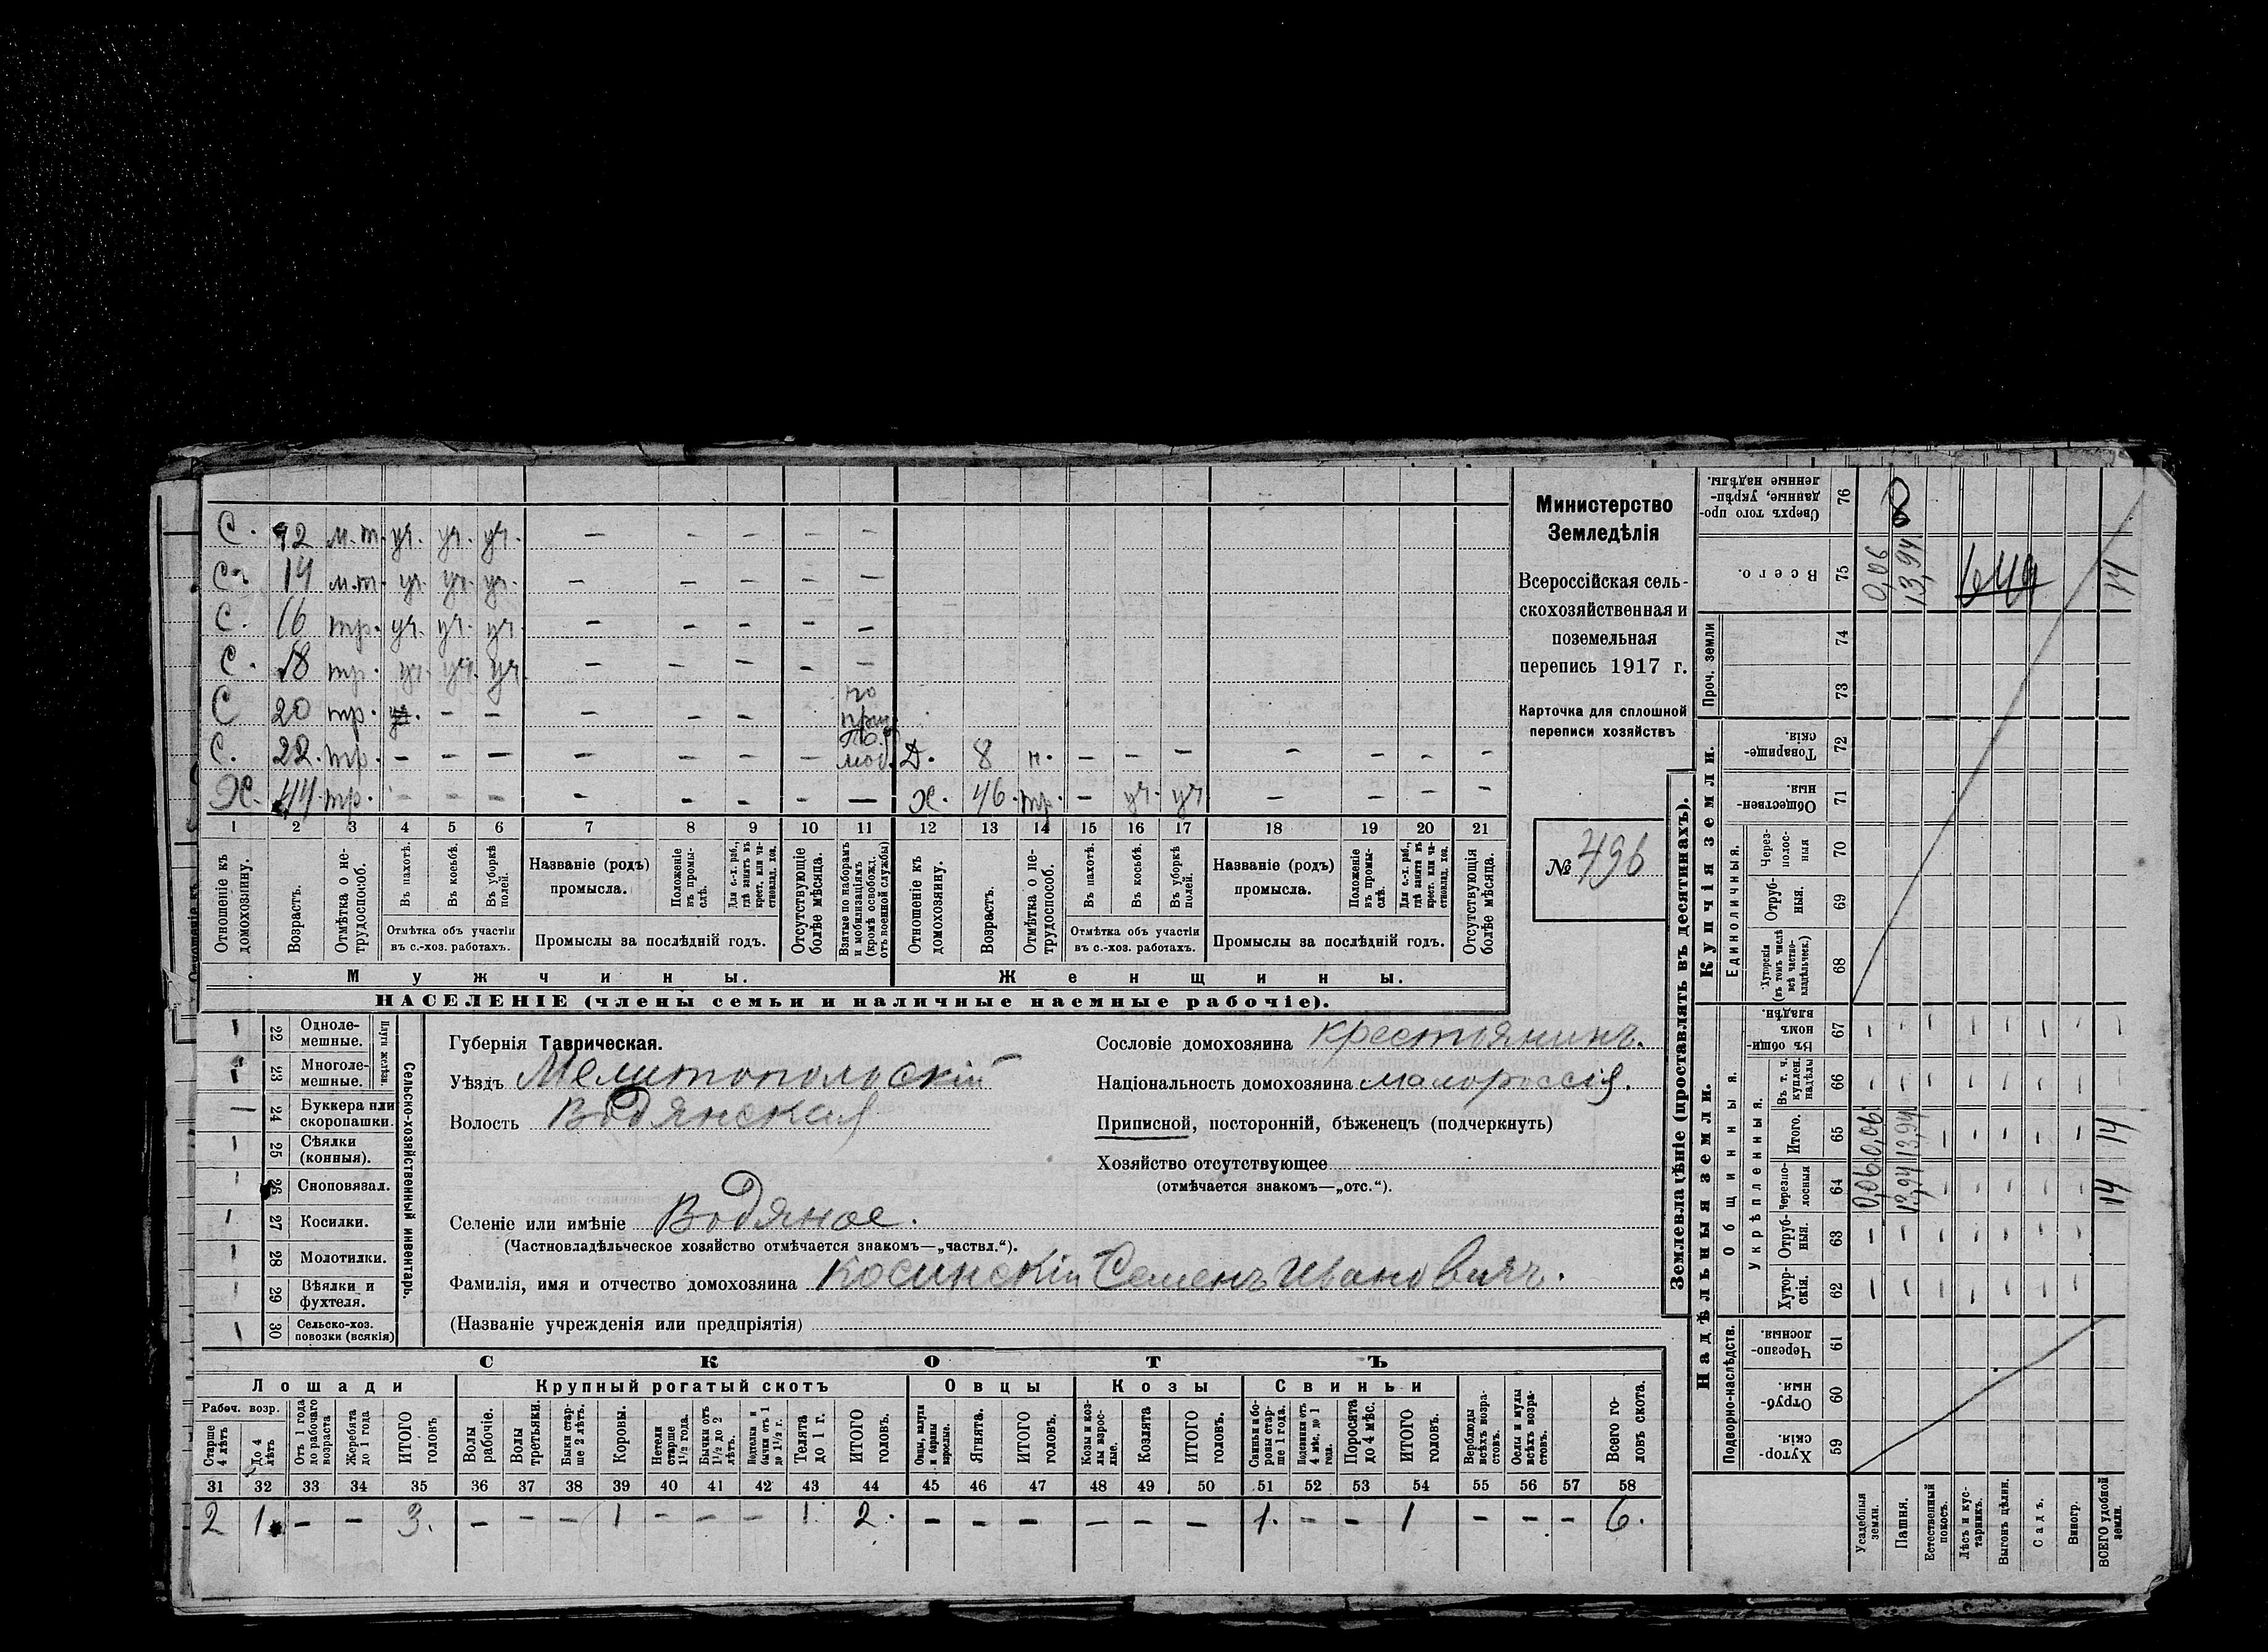 С. 12 м.т. уч. уч. уч. — — — — —
С. 14 м.т. уч. уч. уч. — — — — —
С. 16 тр. уч. уч. уч. — — — — —
С. 18 тр. уч. уч. уч. — — — — —
С 20 тр. уч. — — — — — по приз.
С. 22. тр. — — — — — — — по моб. Д. 8 н. — — — — — — —
Х. 44. тр. — — — — — — — — Х. 46. тр. — уч. уч — — — —
1 2 3 4 5 6 7 8 9 10 11 12 13 14 15 16 17 18 19 20 21
Отношеніе къ домохозяину.
Возрастъ.
Отмѣтка о нетрудоспособ.
Въ пахотѣ.
Въ косьбѣ.
Въ уборкѣ полей.
Отмѣтка объ участіи въ с.-хоз. работахъ.
Названіе (родъ) промысла.
Положеніе въ промыслѣ.
Для с.-х. раб., гдѣ занятъ въ крест. или частновлад. хоз.
Промыслы за послѣдній годъ.
Отсутствующіе болѣе мѣсяца.
Взятые по наборамъ и мобилизаціямъ (кромѣ освобожд. отъ военной службы)
Отношеніе къ домохозяину.
Возрастъ.
Отмѣтка о нетрудоспособ.
Въ пахотѣ.
Въ косьбѣ.
Въ уборкѣ полей.
Отмѣтка объ участіи въ с.-хоз. работахъ.
Названіе (родъ) промысла.
Положеніе въ промыслѣ.
Для с.-х. раб., гдѣ занята въ крест. или частновлад. хоз.
Промыслы за послѣдній годъ.
Отсутствующія болѣе мѣсяца.
Мужчины. Женщины.
НАСЕЛЕНІЕ (члены семьи и наличные наемные рабочіе).
Министерство
Земледѣлія
Всероссійская сель-
скохозяйственная и
поземельная
перепись 1917 г.
Карточка для сплошной
переписи хозяйствъ
№ 496
Сельско-хозяйственный инвентарь.
Плуги желѣзн.
1 22 Одноле-
мешные.
1 23 Многоле-
мешные.
— 24 Буккера или
скоропашки.
1 25 Сѣялки
(конныя).
1 26 Сноповязал.
1 27 Косилки.
1 28 Молотилки.
1 29 Вѣялки и
фухтеля.
1 30 Сельско-хоз.
повозки (всякія)
Губернія Таврическая.
Уѣздъ Мелитопольскій
Волость Водянская
Селеніе или имѣніе Водяное.
(Частновладѣльческое хозяйство отмѣчается знакомъ—„частвл.“).
Фамилія, имя и отчество домохозяина Косинскій Семенъ Ивановичъ.
(Названіе учрежденія или предпріятія)
Сословіе домохозяина крестьянинъ.
Національность домохозяина малороссія.
Приписной, посторонній, бѣженецъ (подчеркнуть)
Хозяйство отсутствующее
(отмѣчается знакомъ—„отс.“).
СКОТЪ
Лошади Крупный рогатый скотъ Овцы Козы Свиньи
Рабоч. возр.
Старше 4 лѣтъ
До 4 лѣтъ
Отъ 1 года до рабочаго возраста
Жеребята до 1 года
ИТОГО головъ
Волы рабочіе.
Волы третьяки.
Быки старше 2 лѣтъ.
Коровы.
Нетели старше 1½ года.
Бычки отъ 1½ до 2 лѣтъ.
Подтелки и бычки отъ 1 до 1½ г.
Телята до 1 г.
ИТОГО головъ.
Овцы, валухи и бараны взрослые.
Ягнята.
ИТОГО головъ.
Козы и козлы взрослые.
Козлята
ИТОГО головъ.
Свиньи и боровы старше 1 года.
Подсвинки отъ 4 мѣс. до 1 года.
Поросята до 4 мѣс.
ИТОГО головъ.
Верблюды всѣхъ возрастовъ.
Ослы и мулы всѣхъ возрастовъ.
Всего головъ скота.
31 32 33 34 35 36 37 38 39 40 41 42 43 44 45 46 47 48 49 50 51 52 53 54 55 56 57 58
2 1. — — 3. — — — 1 — — — 1 2. — — — — — — 1. — — 1 — — — 6.
Землевладѣніе (проставлять въ десятинахъ).
Надѣльныя земли. Купчія земли.
Подворно-наслѣдств. Общинныя. Укрѣпленныя. Единоличныя. Проч. земли
Хуторскія. 59
Отрубныя. 60
Черезполосныя. 61
Хуторскія. 62 — — — — — — —
Отрубныя. 63 — — — — — — —
Черезполосныя 64 0,06 13,94 — — — — — 14
Итого. 65 0,06 13,94 — — — — — 14
Въ т. ч. куплен. надѣлы 66 — — — — — — —
Въ общинномъ владѣн. 67 — — — — — — —
Хуторскія (въ томъ числѣ всѣ частновладѣльческ.) 68
Отрубныя. 69
Черезполосныя 70
Общественныя. 71
Товарищескія. 72
73
74
Всего. 75 0,06 13,94 14
Сверхъ того проданные, укрѣпленные надѣлы. 76 8
Усадебныя земли.
Пашня.
Естественный покосъ.
Лѣсъ и кустарникъ.
Выгонъ цѣлин.
Садъ.
Виногр.
ВСЕГО удобной земли.